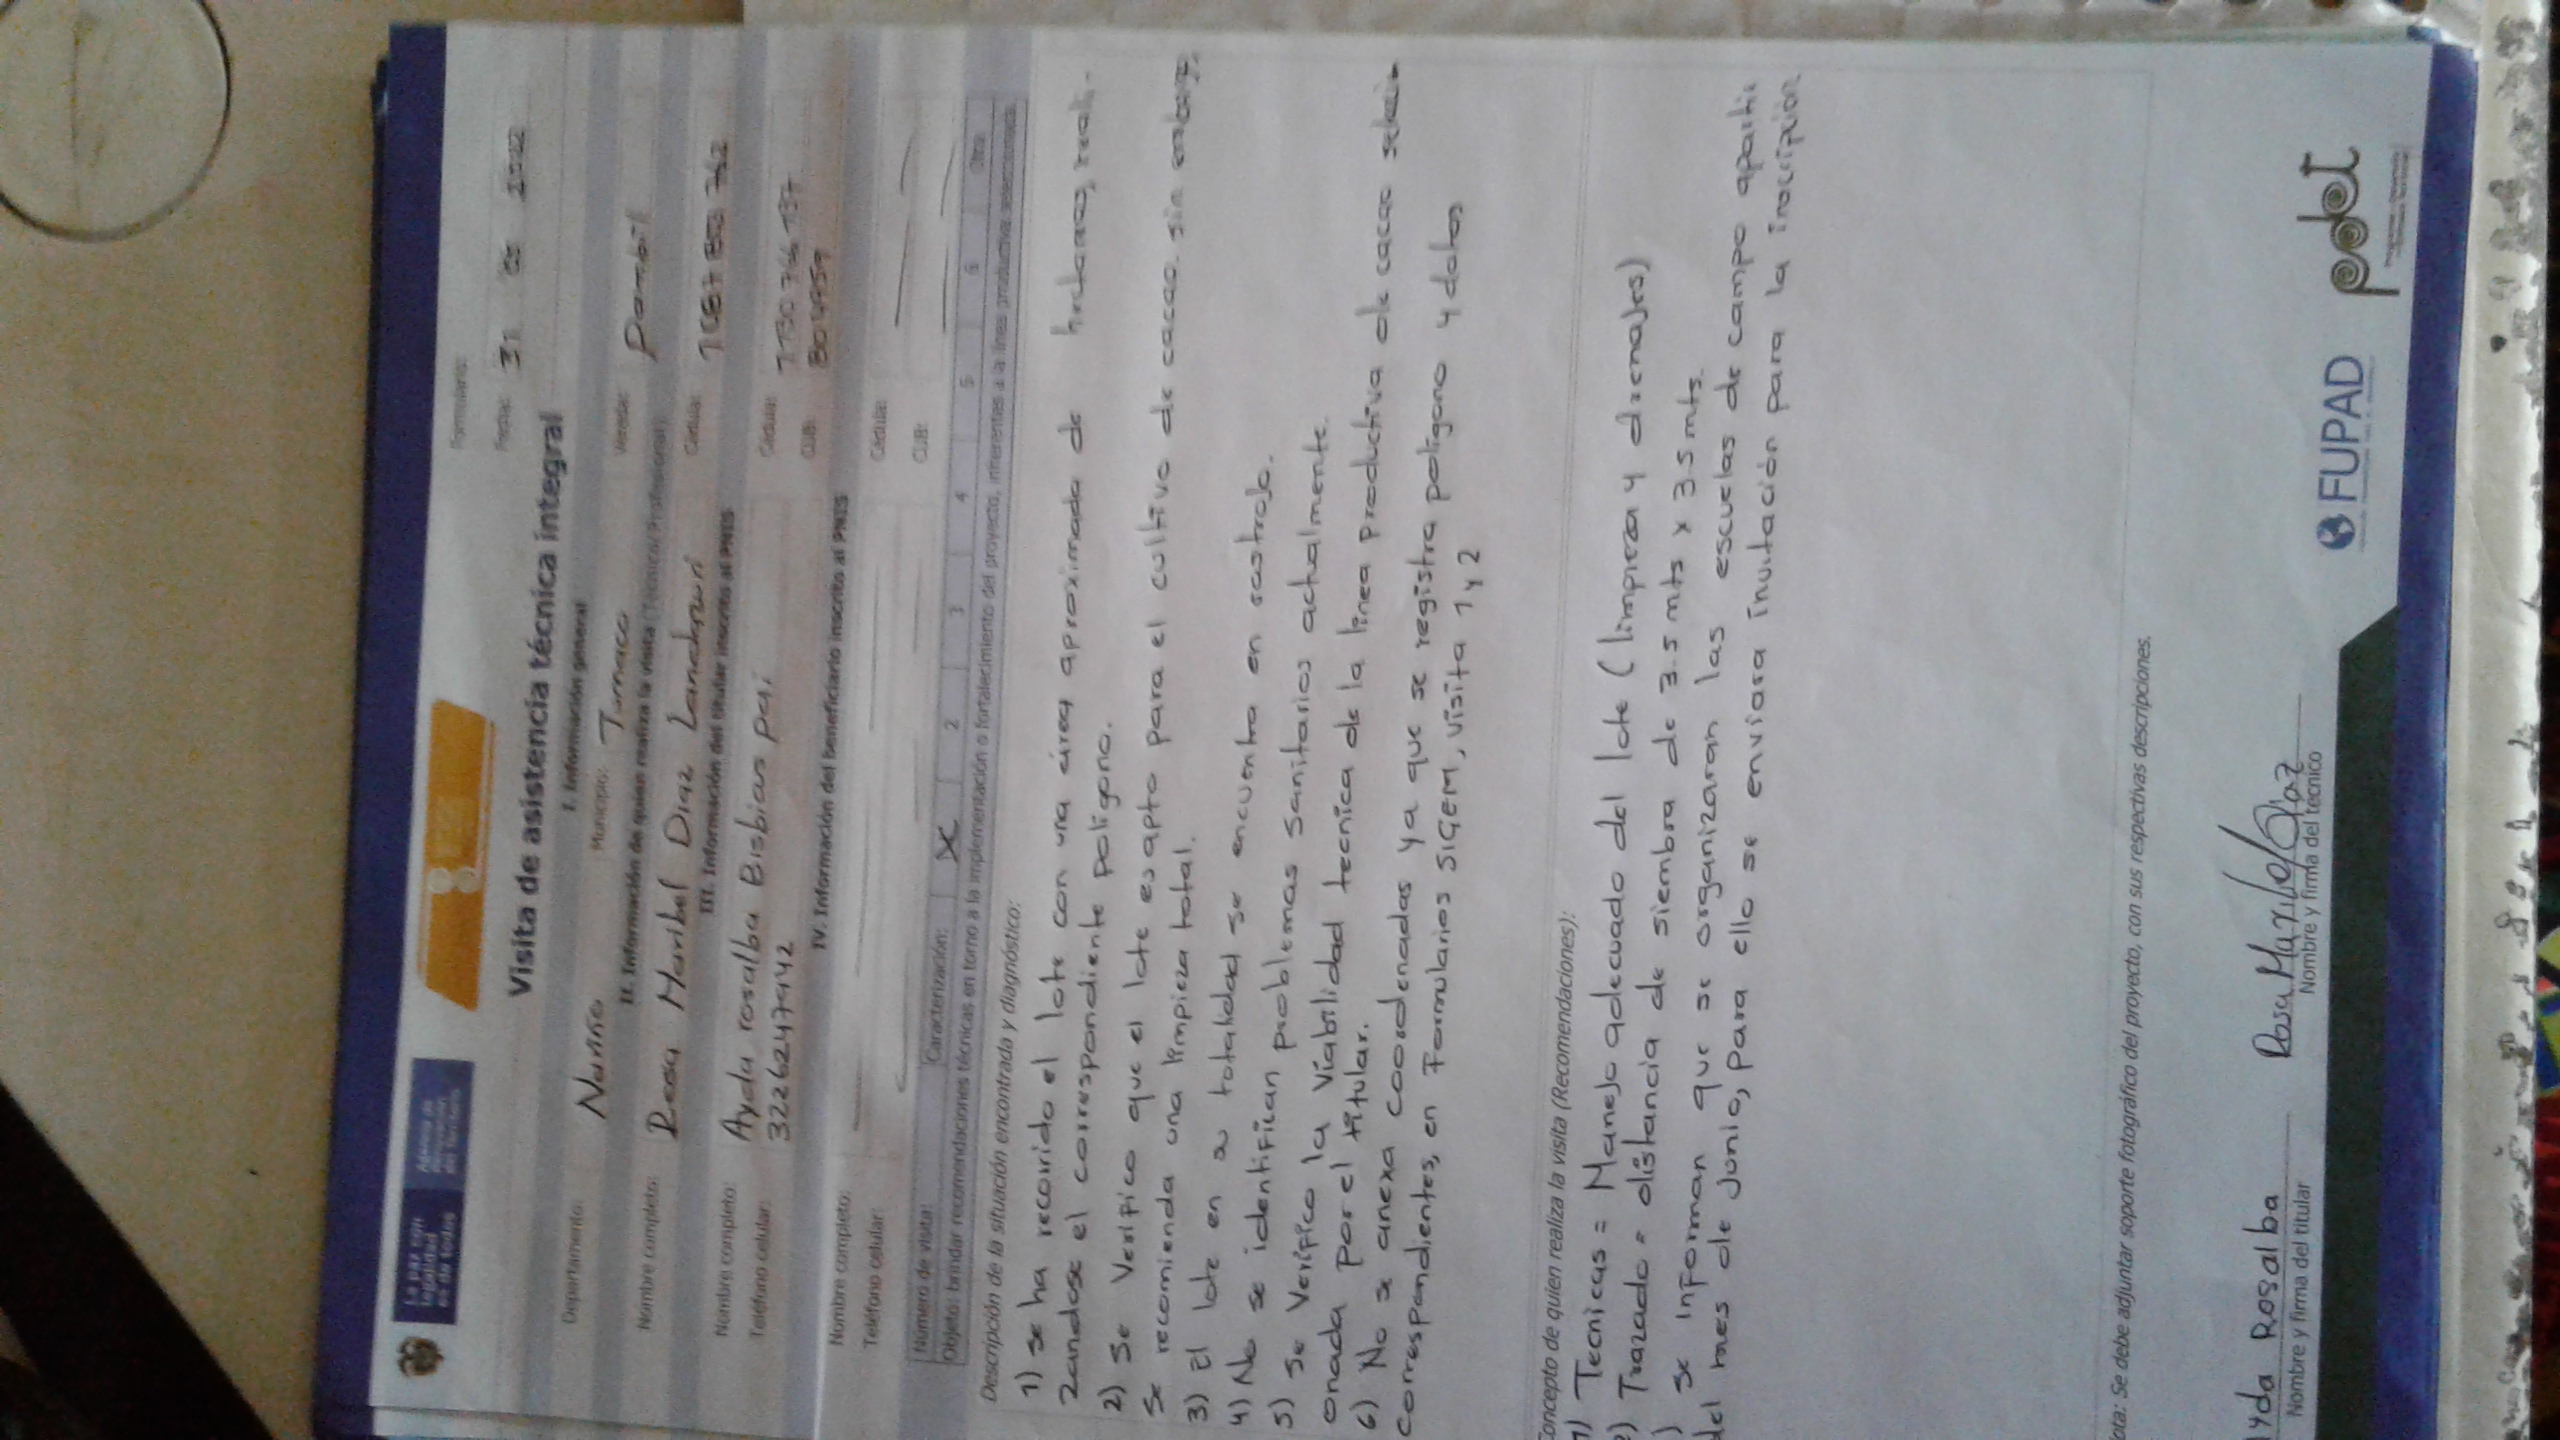 La paz con legalidad es de todos
Agencia de Renovación del Territorio
Formulario:
Fecha: 31 2022
Visita de asistencia técnica integral
I. Información general
Departamento: Nariño Municipio: Tumaco Vereda: Pambil
II. Información de quien realiza la visita (Técnico/ Profesional)
Nombre completo: Rosa Maribel Diaz Landazuri Cédula:
III. Información del titular inscrito al PNIS
Nombre completo: Ayda rosalba Bisbicus pai Cédula:
Teléfono celular: 3226247942 CUB:
IV. Información del beneficiario inscrito al PNIS
Nombre completo: Cédula:
Teléfono celular: CUB:
Número de visita: Caracterización: X 2 3 4 5 6 Otra
Objeto: brindar recomendaciones técnicas en torno a la implementación o fortalecimiento del proyecto, inherentes a la línea productiva seleccionada.
Descripción de la situación encontrada y diagnóstico:
1) se ha recorrido el lote con una área aproximada de hectareas, reali-
zandose el correspondiente polígono.
2) Se Verifico que el lote es apto para el cultivo de cacao, sin embargo,
Se recomienda una limpieza total.
3) El lote en su totalidad se encuentra en rastrojo.
4) No se identifican problemas sanitarios actualmente.
5) Se Verifico la viabilidad tecnica de la línea productiva de cacao selecci-
onada por el titular.
6) No se anexa coordenadas ya que se registra polígono y datos
correspondientes, en Formularios SIGEM, visita 1 y 2
Concepto de quien realiza la visita (Recomendaciones):
1) Tecnicas = Manejo adecuado del lote (limpieza y drenajes)
2) Trazado = distancia de siembra de 3.5 mts x 3.5 mts.
) Se Informan que se organizaran las escuelas de campo apartir
del mes de Junio, para ello se enviara invitación para la inscripción
Nota: Se debe adjuntar soporte fotográfico del proyecto, con sus respectivas descripciones.
yda Rosalba Rosa Maribel Diaz
Nombre y firma del titular Nombre y firma del técnico
FUPAD pdet